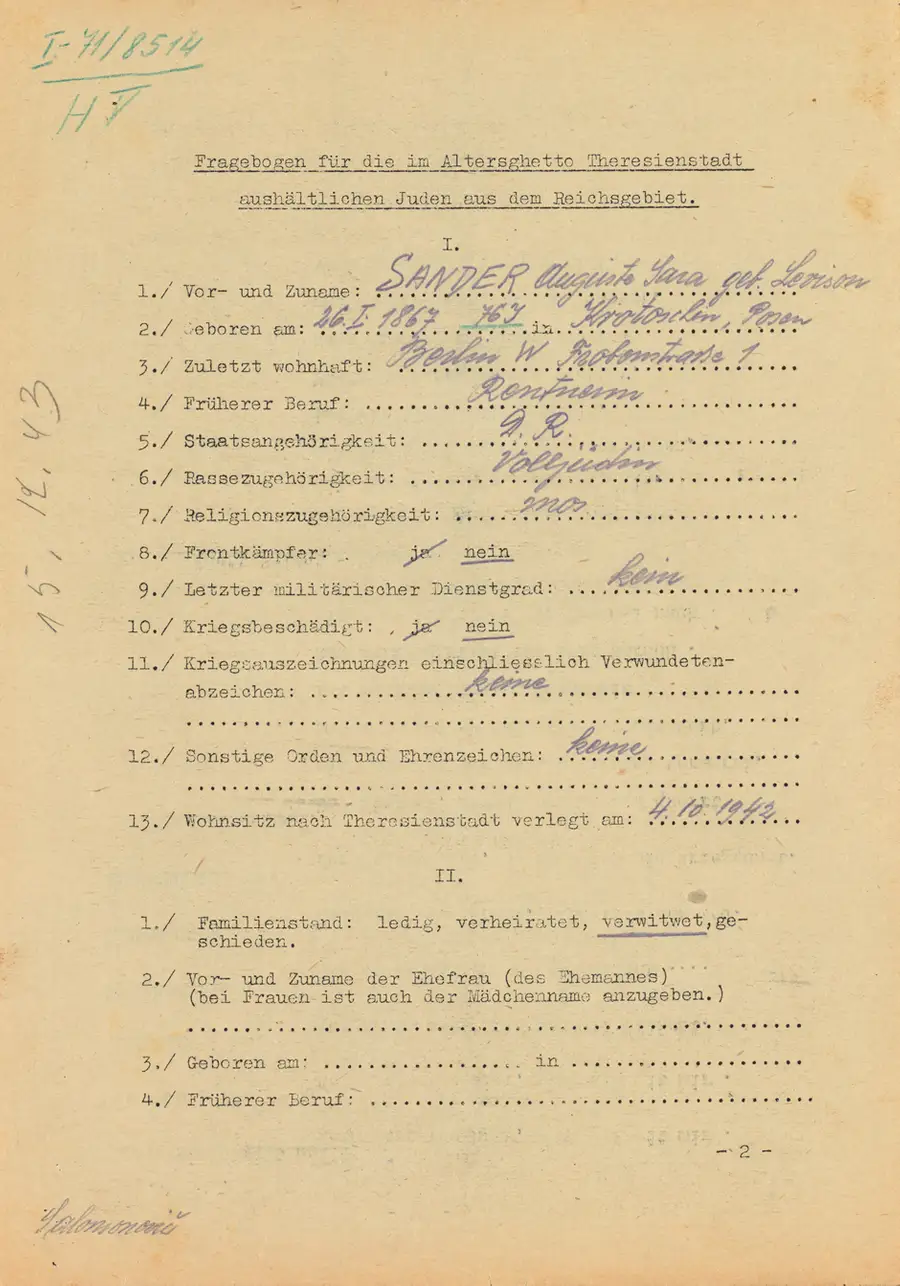 I-71/8514
HV
Fragebogen für die im Altersghetto Theresienstadt
aushältlichen Juden aus dem Reichsgebiet.
I.
1./ Vor- und Zuname: SANDER Auguste Sara geb. Levison
2./ Geboren am: 26.I.1867 763 in Krotoschin, Posen
3./ Zuletzt wohnhaft: Berlin W Frobenstrasse 1
4./ Früherer Beruf: Rentnerin
5./ Staatsangehörigkeit: D. R.
6./ Rassezugehörigkeit: Volljüdin
7./ Religionszugehörigkeit: mos
8./ Frontkämpfer: ja nein
9./ Letzter militärischer Dienstgrad: kein
10./ Kriegsbeschädigt: ja nein
11./ Kriegsauszeichnungen einschliesslich Verwundeten-
abzeichen: keine
12./ Sonstige Orden und Ehrenzeichen: keine
13./ Wohnsitz nach Theresienstadt verlegt am: 4.10.1942
15. 12. 43
II.
1./ Familienstand: ledig, verheiratet, verwitwet, ge-
schieden.
2./ Vor- und Zuname der Ehefrau (des Ehemannes)
(bei Frauen ist auch der Mädchenname anzugeben.)
3./ Geboren am: in
4./ Früherer Beruf:
- 2 -
Salomonovič